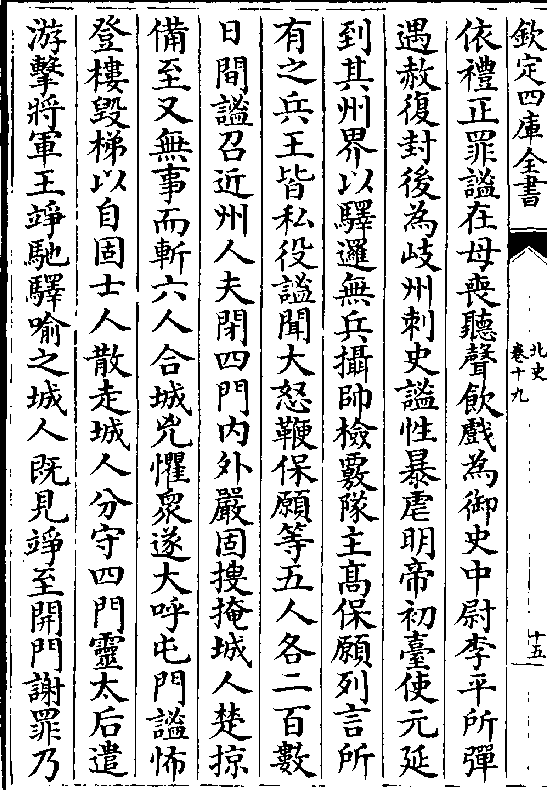 欽定四庫全書
北史
卷十九
十五
依禮正罪謐在母喪聽聲飲戲為御史中尉李平所彈
遇赦復封後為岐州刺史謐性暴虐明帝初臺使元延
到其州界以驛邏無兵攝帥檢覈隊主高保願列言所
有之兵王皆私役謐聞大怒鞭保願等五人各二百數
日間謐召近州人夫閉四門內外嚴固搜掩城人楚掠
備至又無事而斬六人合城兇懼衆遂大呼屯門謐怖
登樓毀梯以自固士人散走城人分守四門靈太后遣
游擊將軍王竫馳驛喻之城人既見竫至開門謝罪乃